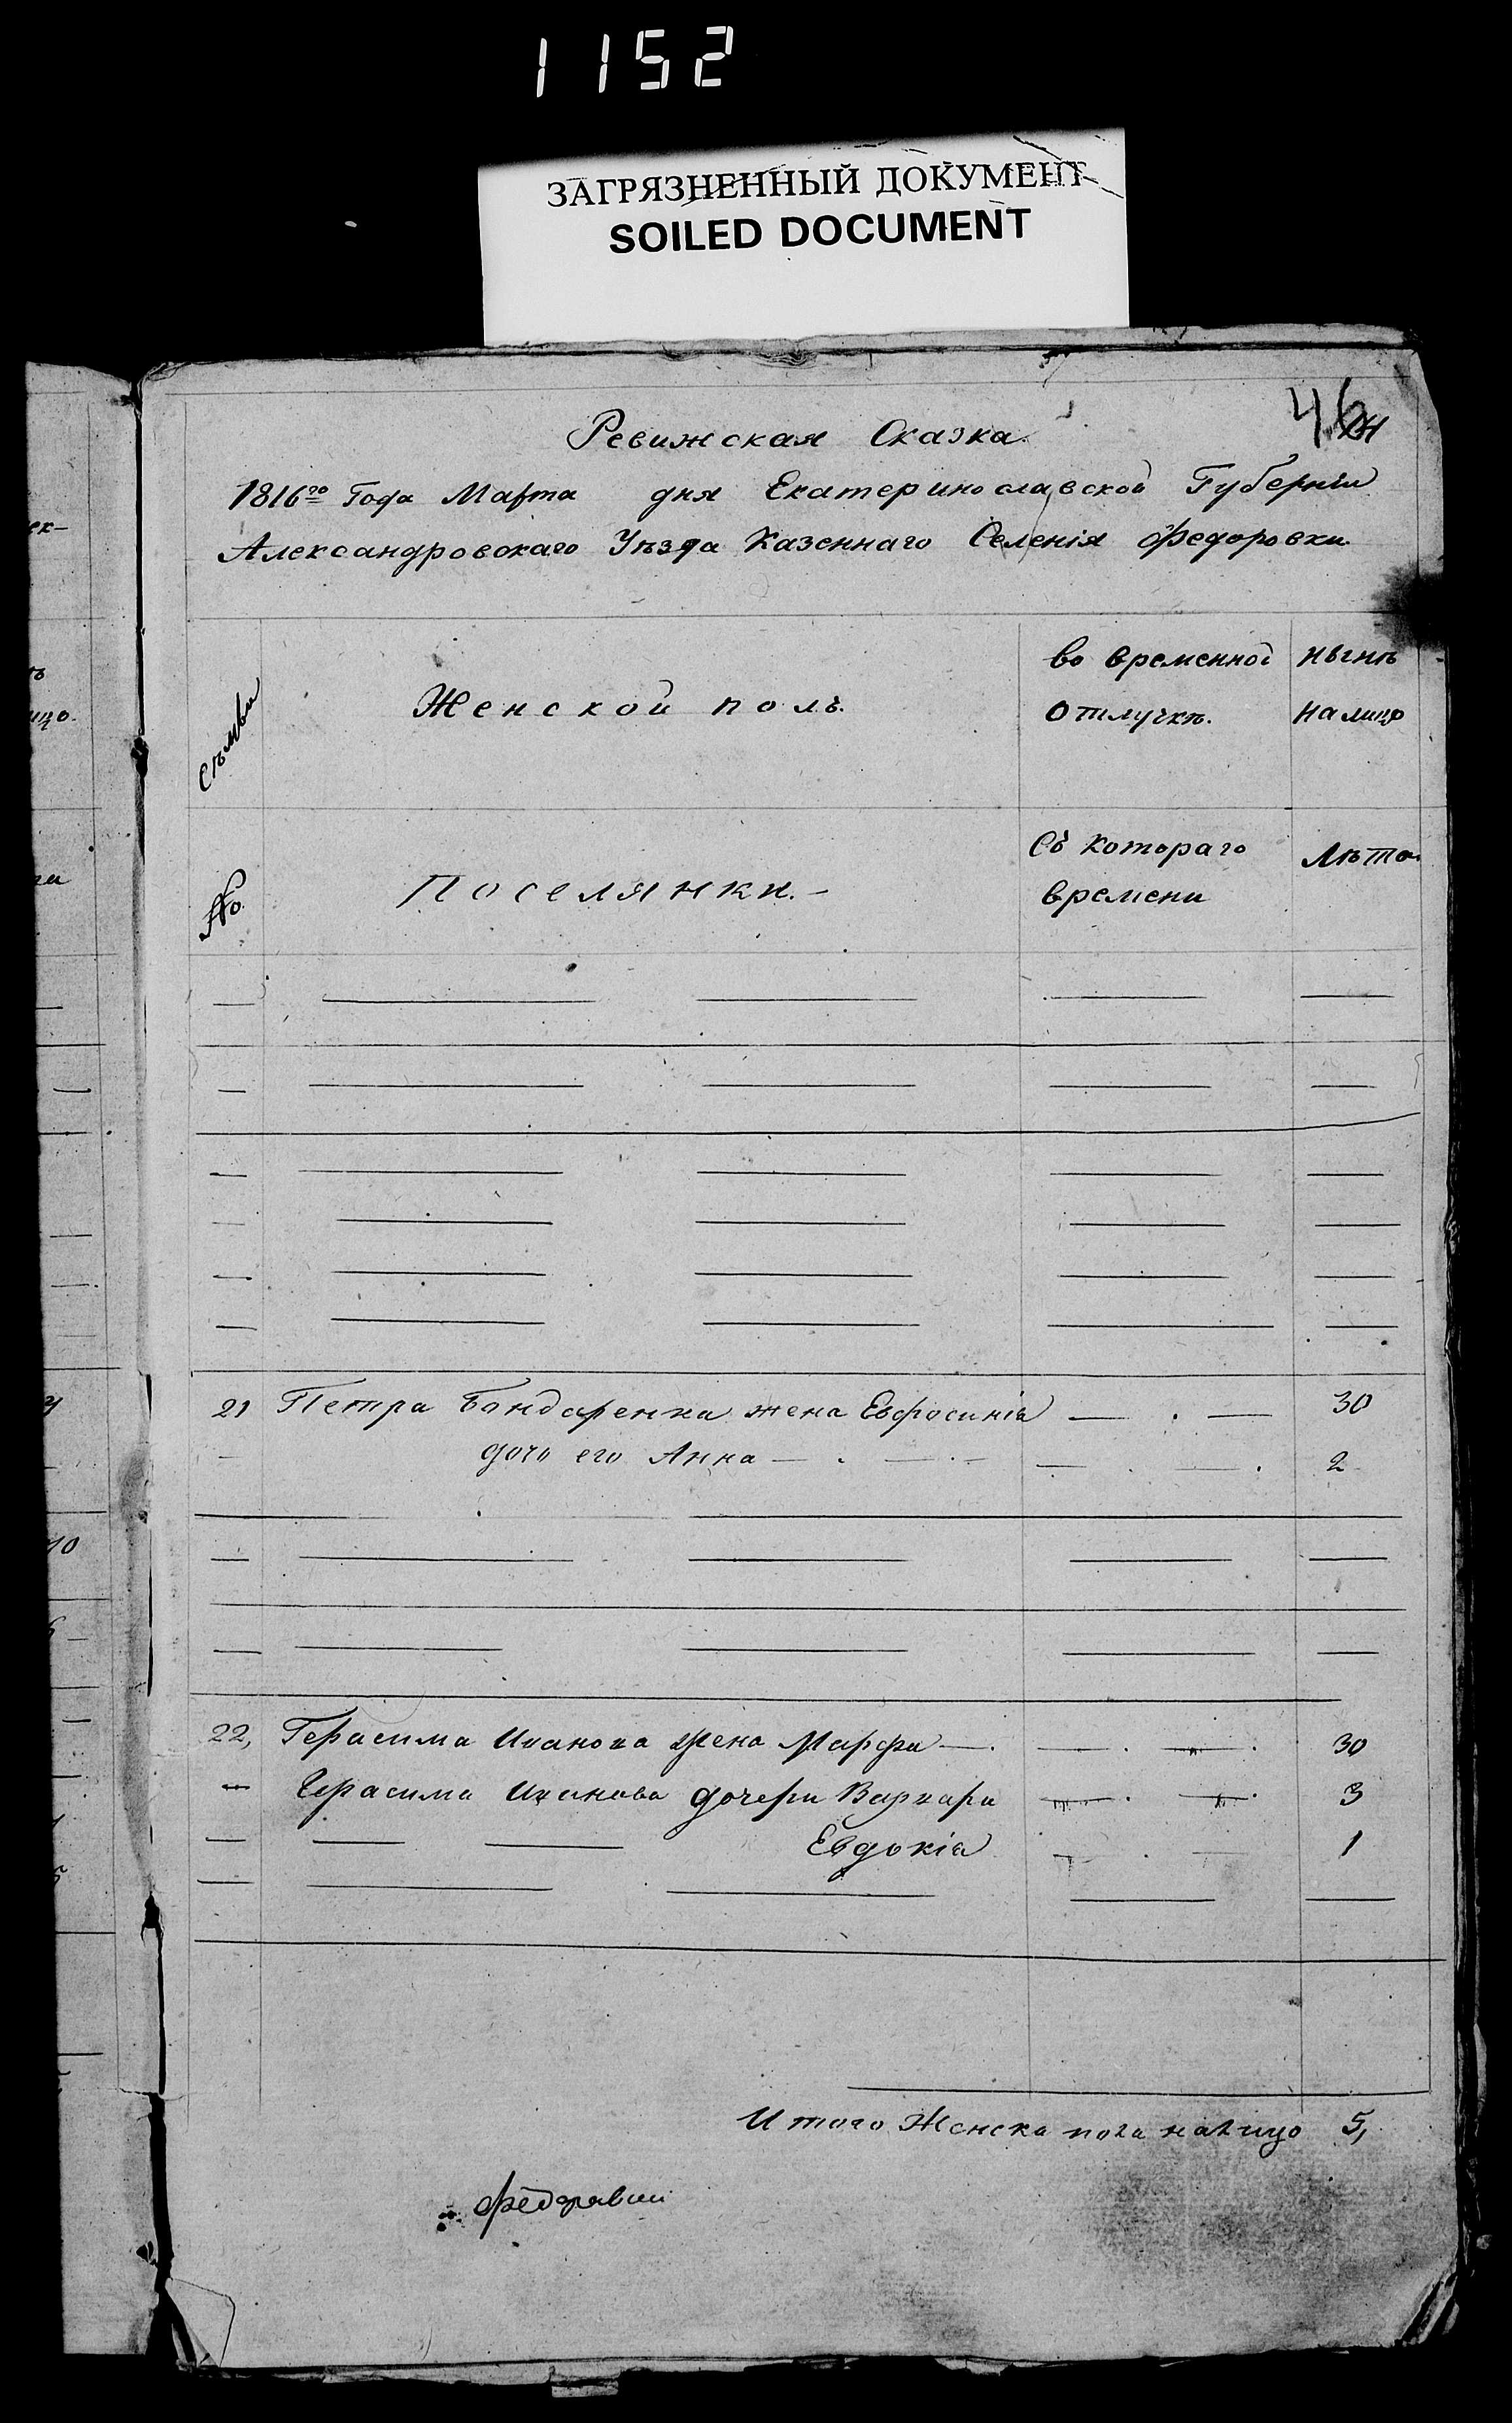 1152
ЗАГРЯЗНЕННЫЙ ДОКУМЕНТ
SOILED DOCUMENT
46
Ревижская Сказка.
1816го Года Марта дня Екатеринославской Губерніи
Александровскаго Уѣзда Казеннаго Селенія Федоровки
Семьи
Женской полъ.
во временной отлучкѣ.
нынѣ налицо
№
Поселянки. —
Съ котораго времени
Лѣта
21 Петра Бондаренка жена Евфросинія — . — 30
дочь его Анна — . — . — — . — . 2
22, Герасима Иванова жена Марфа — . — . — . 30
— Герасима Иванова дочери Варвара — . — . 3
— — — Евдокія — . — 1
Итого Женска пола налицо 5,